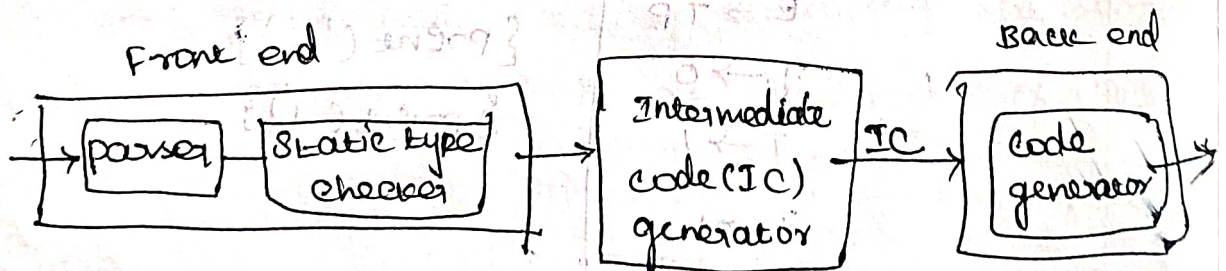 Front end
Back end
parser
Static type
checker
Intermediate
code (IC)
generator
IC
code
generator